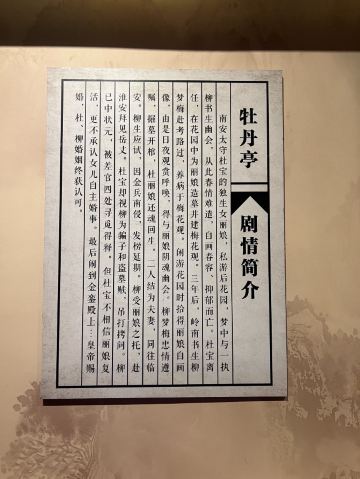 牡丹亭
剧情简介
南安太守杜宝的独生女丽娘，私游后花园，梦中与一执
柳书生幽会，从此春情难遣，自画春容，抑郁而亡。杜宝离
任，在花园中为丽娘造墓并建梅花观。三年后，岭南书生柳
梦梅赴考路过，养病于梅花观，闲游花园时拾得丽娘自画
像，由是日夜观赏呼唤，得与丽娘阴魂幽会。柳梦梅忠情遵
嘱，掘墓开棺，杜丽娘还魂回生，二人结为夫妻，同往临
安。柳生应试，因金兵南侵，发榜延期，柳受丽娘之托，赴
淮安拜见岳丈。杜宝却视柳为骗子和盗墓贼，吊打拷问。柳
已中状元，被差官四处寻觅得释，但杜宝不相信丽娘复
活，更不承认女儿自主婚事。最后闹到金銮殿上…皇帝赐
婚，杜、柳婚姻终获认可。